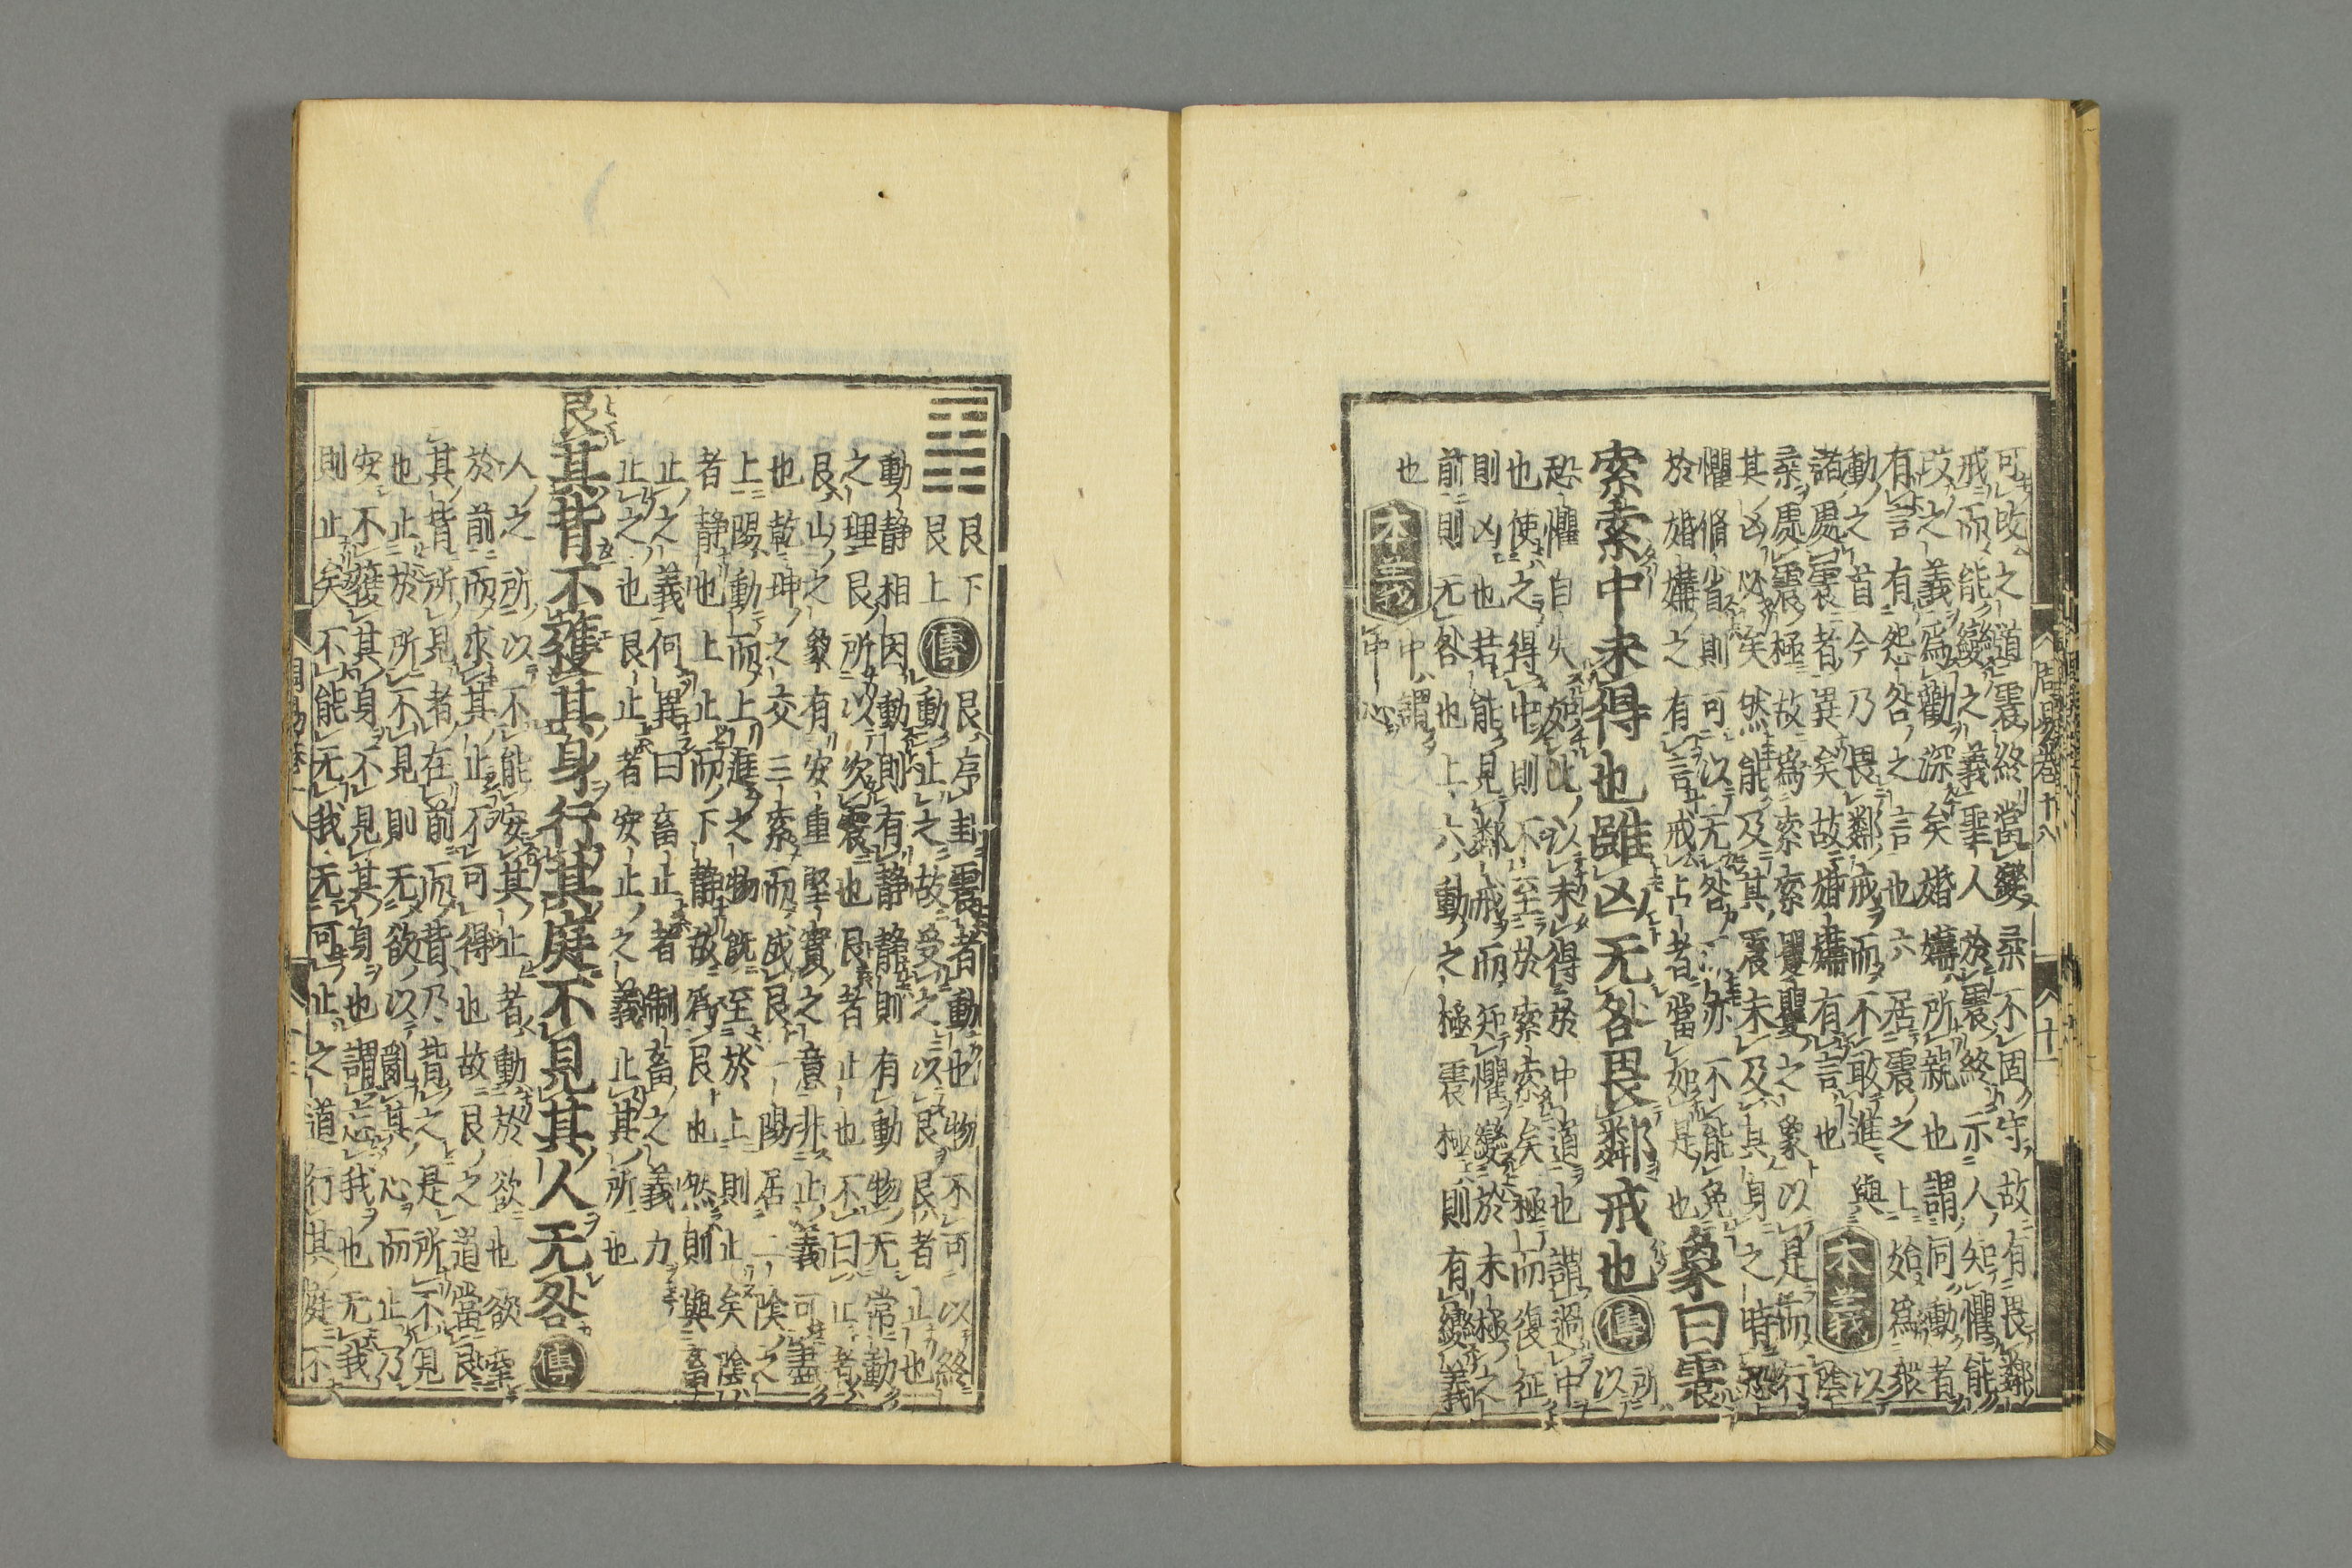 周易卷十八 十一
可改之道震終當變柔不固守故有畏鄰
戒而能變之義聖人於震終示人知懼能
改之義爲勸深矣婚媾所親也謂同動者
有言有怨咎之言也六居震之上始爲衆
動之首今乃畏鄰戒而不敢進與
諸處震者異矣故婚媾有言也
本義
以陰
柔處震極故爲索索矍矍之象以是而行
其凶必矣然能及其震未及其身之時恐
懼脩省則可以无咎而亦不能免
於婚媾之有言戒占者當如是也
象曰震
索索中未得也雖凶无咎畏鄰戒也
傳
所以
恐懼自失如此以未得於中道也謂過中
也使之得中則不至於索索矣極而復征
則凶也若能見鄰戒而知懼變於未極之
前則无咎也上六動之極震極則有變義
也
本義
中謂
中心
艮下
艮上
傳
艮序卦震者動也物不可以終
動止之故受之以艮艮者止也
動静相因動則有静静則有動物无常動
之理艮所以次震也艮者止也不曰止者
艮山之象有安重堅實之意非止義可盡
也乾坤之交三索而成艮一陽居二陰之
上陽動而上進之物既至於上則止矣陰
者静也上止而下静故爲艮也然則與畜
止之義何異曰畜止者制畜之義力
止之也艮止者安止之義止其所也
艮其背不獲其身行其庭不見其人无咎
傳
人之所以不能安其止者動於欲也欲牽
於前而求其止不可得也故艮之道當艮
其背所見者在前而背乃背之是所不見
也止於所不見則无欲以亂其心而止乃
安不獲其身不見其身也謂忘我也无我
則止矣不能无我无可止之道行其庭不